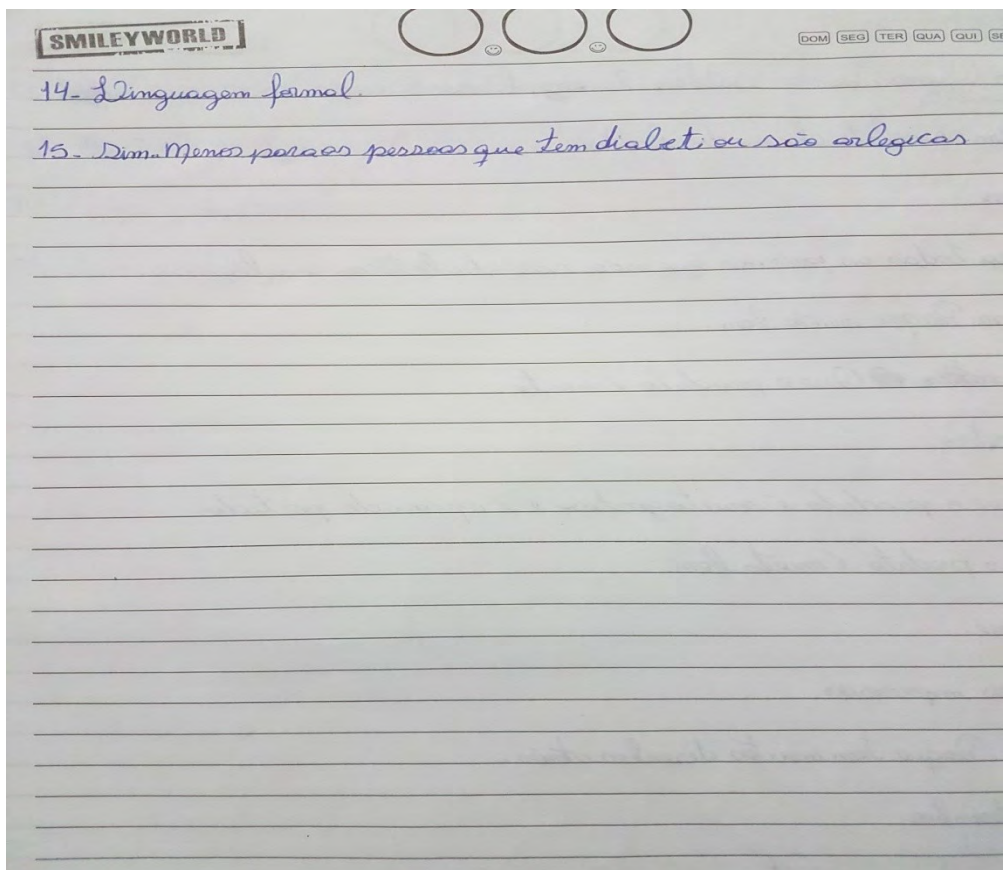 SMILEYWORLD
DOM SEG TER QUA QUI
14- Linguagem formal.
15- Sim. Menos para as pessoas que tem diabeti ou são arlegicas